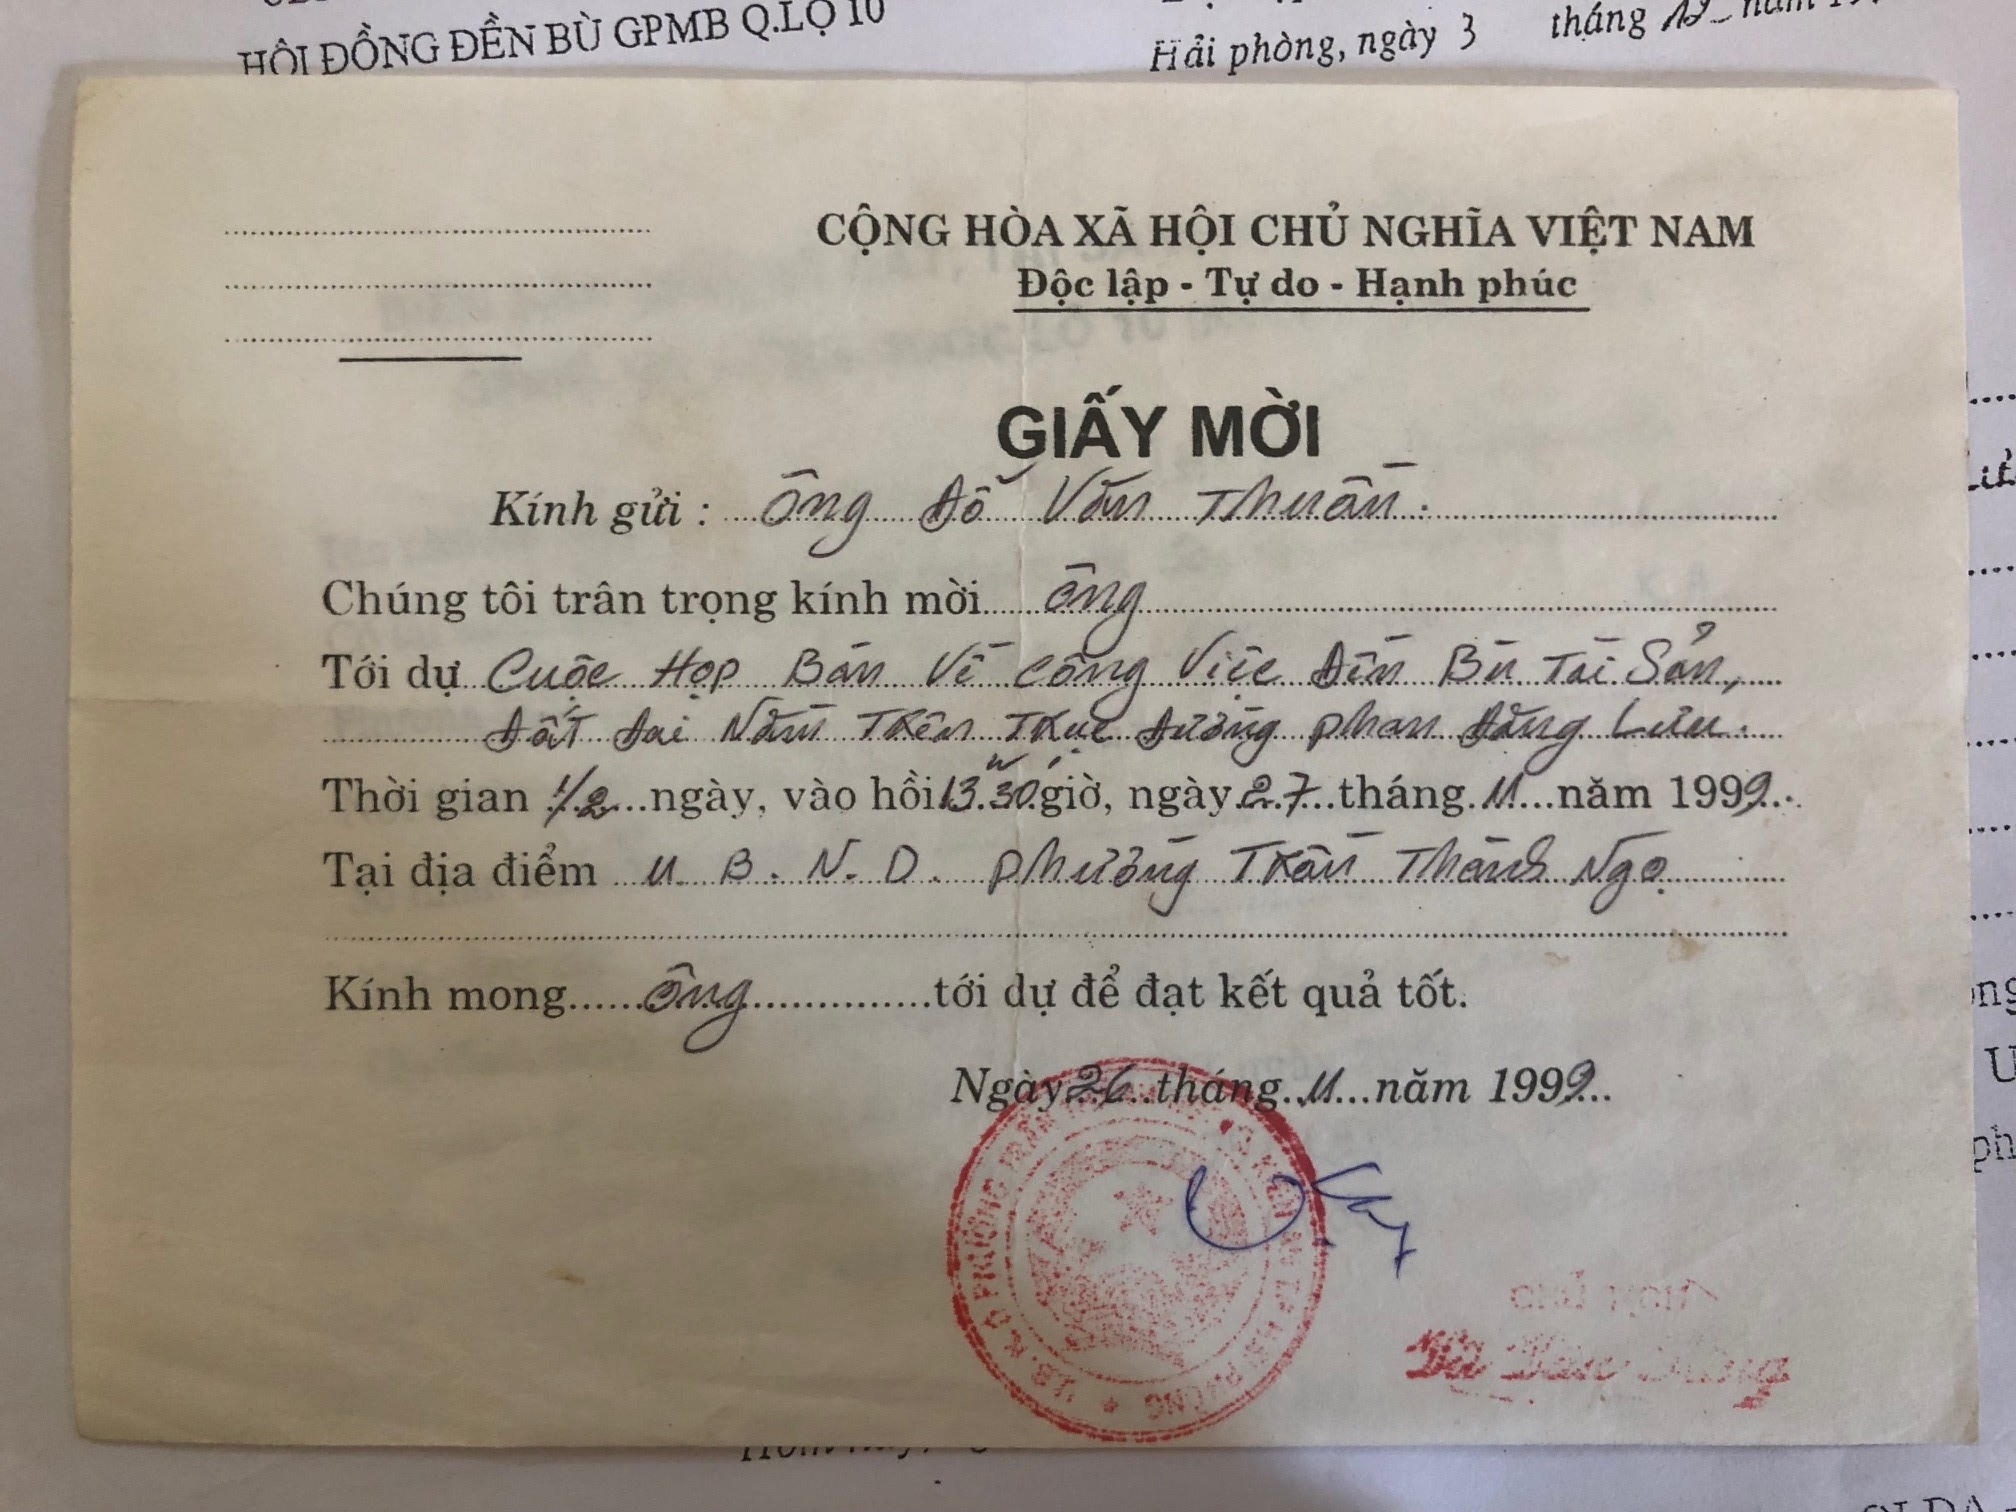 HỘI ĐỒNG ĐỀN BÙ GPMB Q.LỘ 10
Hải phòng, ngày 3 tháng 12 năm
CỘNG HÒA XÃ HỘI CHỦ NGHĨA VIỆT NAM
Độc lập - Tự do - Hạnh phúc
GIẤY MỜI
Kính gửi : Ông Đỗ Văn Thuần.
Chúng tôi trân trọng kính mời ông
Tới dự Cuộc Họp Bàn Về Công Việc Đền Bù Tài Sản,
Đất đai Nằm Trên Trục đường Phan Đăng Lưu.
Thời gian 1/2 ngày, vào hồi 13h30' giờ, ngày 27 tháng 11 năm 1999
Tại địa điểm U.B.N.D. Phường Trần Thành Ngọ
Kính mong ông tới dự để đạt kết quả tốt.
Ngày 26 tháng 11 năm 1999
U.B.N.D PHƯỜNG TRẦN
KIẾN AN TP HẢI PHÒNG